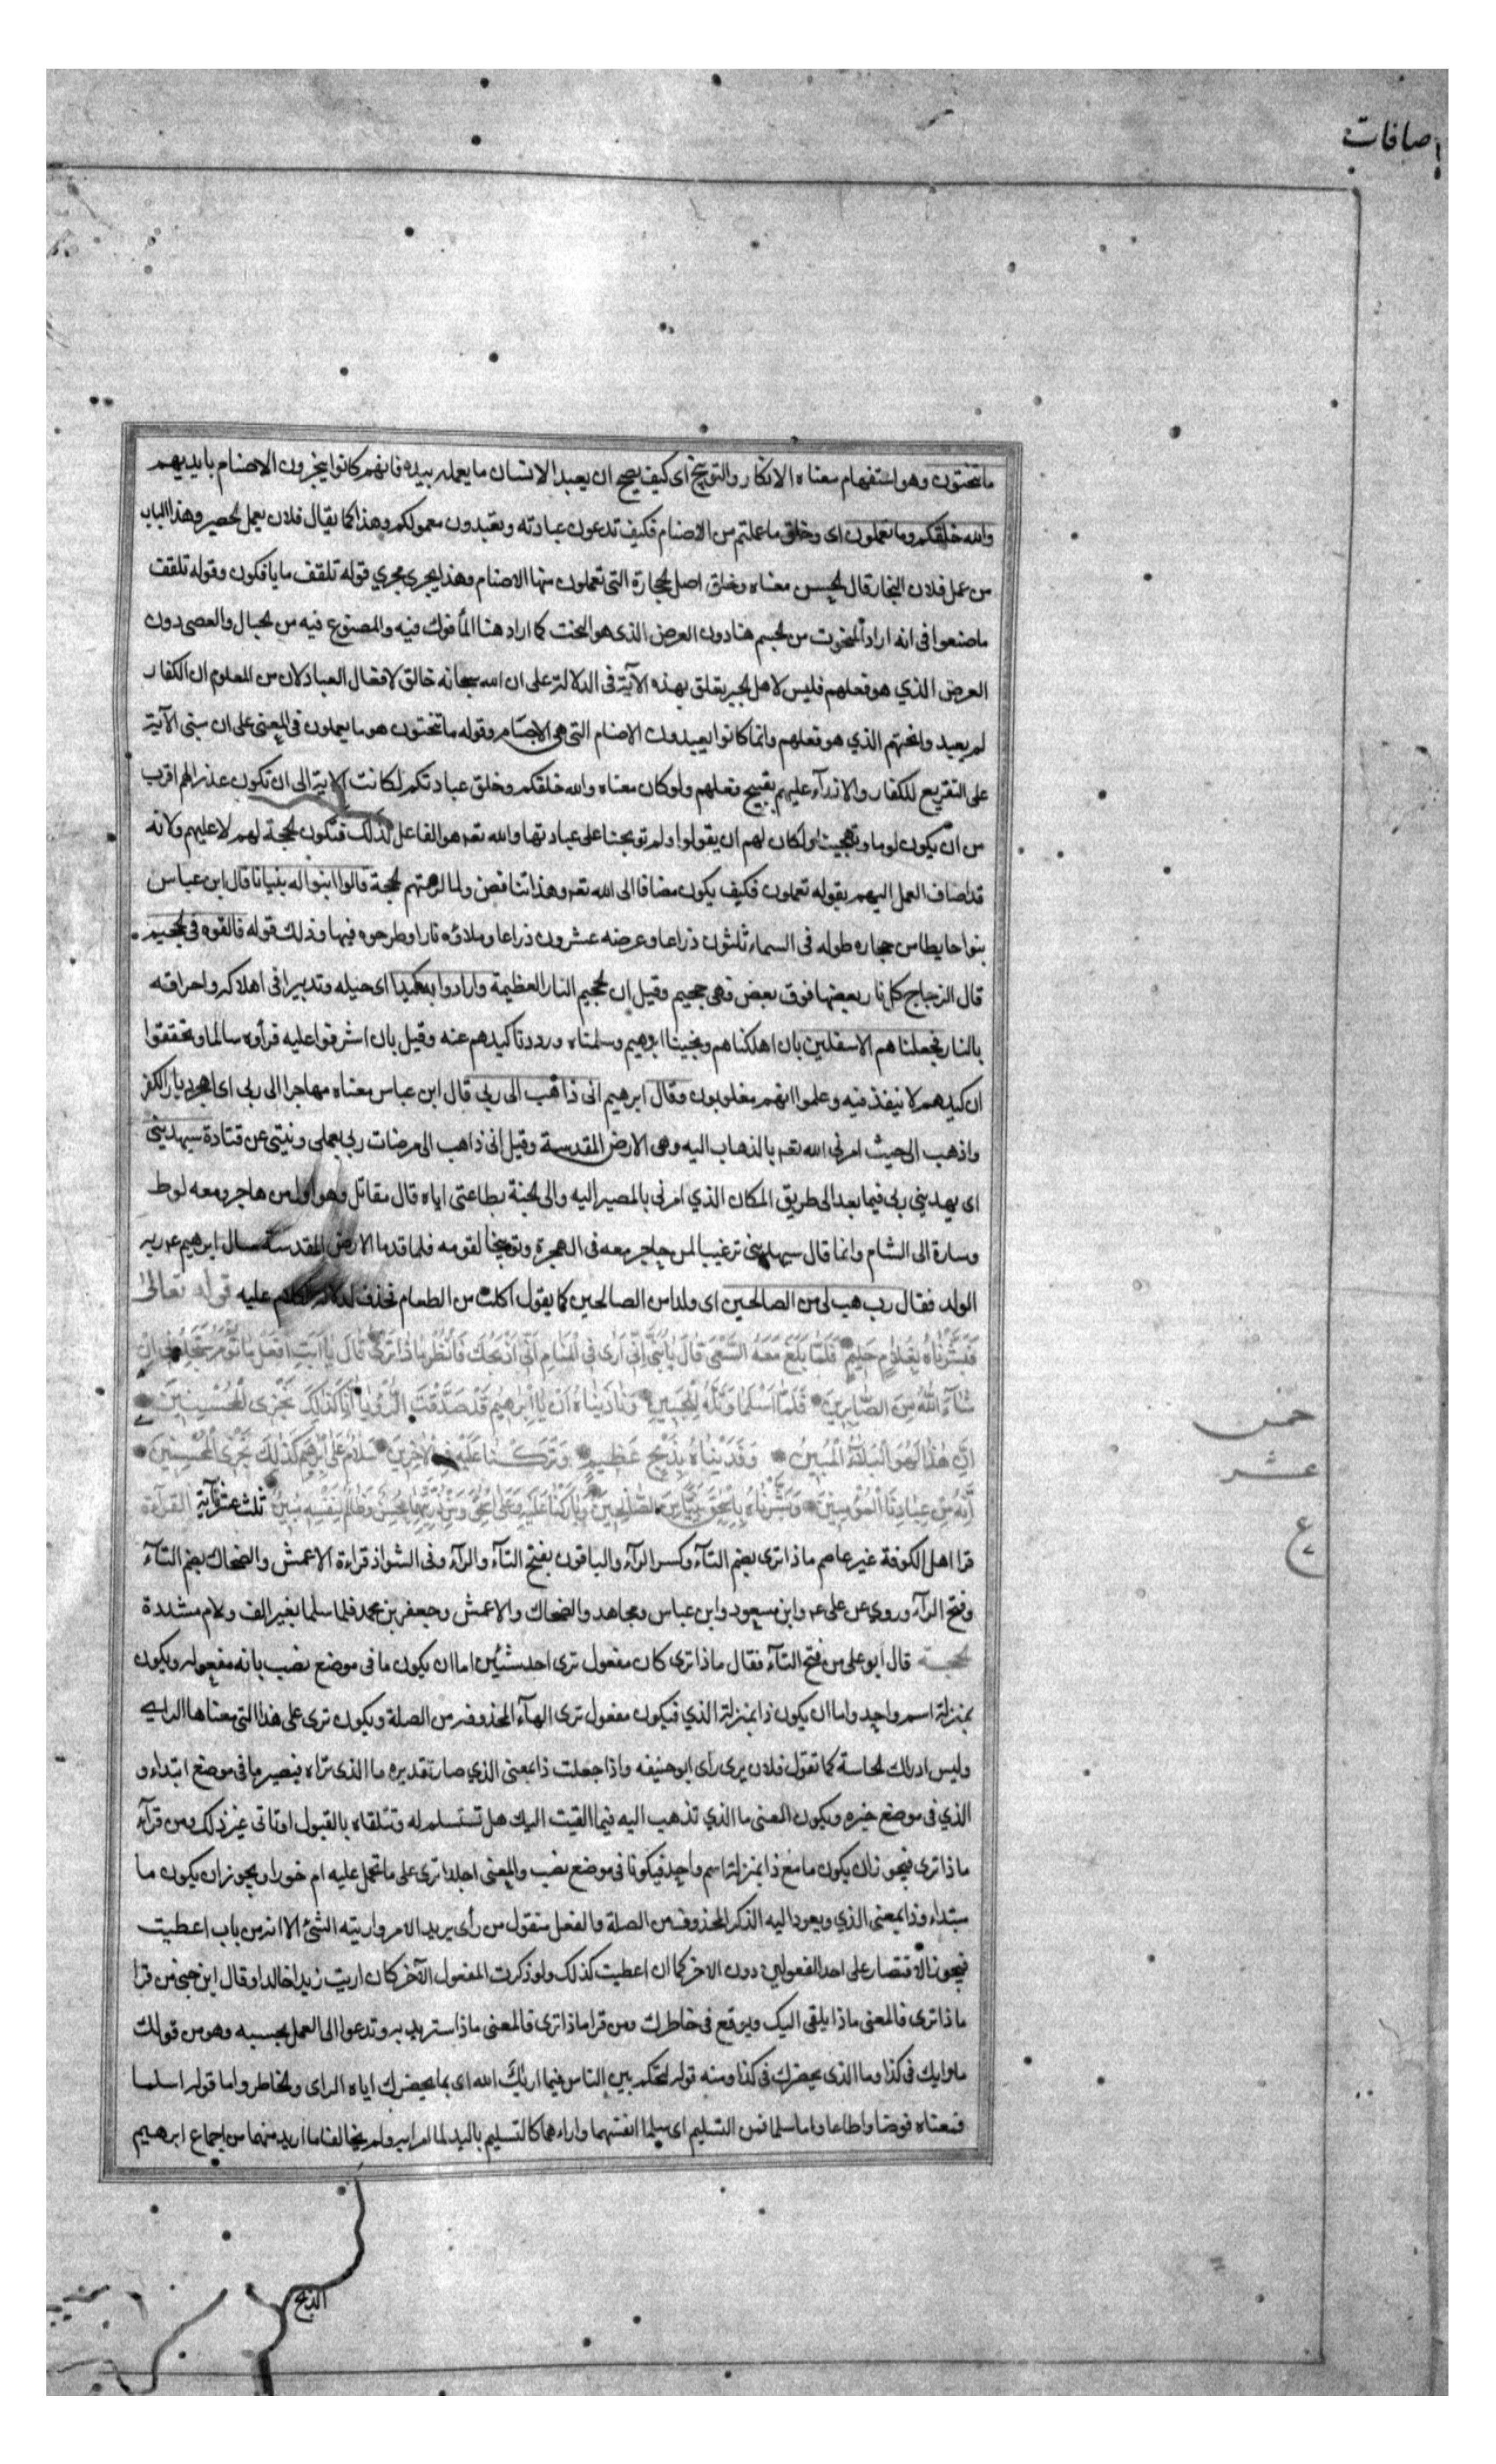 صافات
ما تنحتون وهو استفهام معناه الانكار والتوبيخ اى كيف يصح ان يعبد الانسان ما يعمله بيده فانهم كانوا ينجرون الاصنام بايديهم
والله خلقكم وما تعملون اى وخلق ما عملتم من الاصنام فكيف تدعون عبادته وتعبدون معمولكم وهذا كما يقال فلان يعمل الحصير وهذا الباب
من عمل فلان النجار قال الحسن معناه وخلق اصل الحجارة التى تعملون منها الاصنام وهذا يجرى مجري قوله تلقف ما يافكون وقوله تلقف
ما صنعوا فى انه اراد المنحوت من الجسم هنا دون العرض الذى هو النحت كما اراد هنا المأفوك فيه والمصنوع فيه من الحبال والعصى دون
العرض الذي هو فعلهم فليس لاهل الجبر تعلق بهذه الآية فى الدلالة على ان الله سبحانه خالق لافعال العباد لان من المعلوم ان الكفار
لم يعبد وا نحتهم الذي هو فعلهم وانما كانوا يعبدون الاصنام التى هى الاجسام وقوله ما تنحتون هو ما يعملون فى المعنى على ان مبنى الآية
على التقريع للكفار والازرآء عليهم بقبيح فعلهم ولو كان معناه والله خلقكم وخلق عبادتكم لكانت الاية الى ان تكون عذرا لهم اقرب
من ان يكون لوما وتهجينا ولكان لهم ان يقولوا ولم توبخنا على عبادتها والله تعـ هو الفاعل لذلك فتكون الحجة لهم لا عليهم ولانه
قد اضاف العمل اليهم بقوله تعملون فكيف يكون مضافا الى الله تعـ وهذا تناقض ولما لزمتهم الحجة قالوا ابنوا له بنيانا قال ابن عباس
بنوا حايطا من حجاره طوله فى السماء ثلثون ذراعا وعرضه عشرون ذراعا وملاؤه نارا وطرحوه فيها وذلك قوله فالقوه فى الجحيم
قال الزجاج كل نار بعضها فوق بعض فهى جحيم وقيل ان الجحيم النار العظيمة وارادوا به كيدا اى حيله وتدبيرا فى اهلاكه واحراقه
بالنار فجعلناهم الاسفلين بان اهلكناهم ونجينا ابرهيم وسلمناه ورددنا كيدهم عنه وقيل بان اشرفوا عليه فرأوه سالما وتحققوا
ان كيدهم لا ينفذ فيه وعلموا انهم مغلوبون وقال ابرهيم انى ذاهب الى ربى قال ابن عباس معناه مهاجرا الى ربى اى اهجر ديار الكفر
واذهب الى حيث امرنى الله تعـ بالذهاب اليه وهى الارض المقدسة وقيل انى ذاهب الى مرضات ربى بعملى ونيتى عن قتادة سيهدينى
اى يهدينى ربى فيما بعد الى طريق المكان الذي امرنى بالمصير اليه والى الجنة بطاعتى اياه قال مقاتل وهو اول من هاجر ومعه لوط
وسارة الى الشام وانما قال سيهدينى ترغيبا لمن هاجر معه فى الهجرة وتوبيخا لقومه فلما قدما الارض المقدسة سال ابرهيم عـ ربه
الولد فقال رب هب لى من الصالحين اى ولدا من الصالحين كما يقول اكلت من الطعام فحذف لدلالة الكلام عليه قوله تعالى
فَبَشَّرْنَاهُ بِغُلَامٍ حَلِيمٍ فَلَمَّا بَلَغَ مَعَهُ السَّعْىَ قَالَ يَا بُنَىَّ اِنِّى اَرَى فِى الْمَنَامِ اَنِّى اَذْبَحُكَ فَانْظُرْ مَاذَا تَرَى قَالَ يَا اَبَتِ افْعَلْ مَا تُؤْمَرُ سَتَجِدُنِى اِنْ
شَآءَ اللهُ مِنَ الصَّابِرِينَ فَلَمَّا اَسْلَمَا وَتَلَّهُ لِلْجَبِينِ وَنَادَيْنَاهُ اَنْ يَا اِبْرَاهِيمُ قَدْ صَدَّقْتَ الرُّؤْيَا اِنَّا كَذَلِكَ نَجْزِى الْمُحْسِنِينَ
اِنَّ هَذَا لَهُوَ الْبَلَاءُ الْمُبِينُ وَفَدَيْنَاهُ بِذِبْحٍ عَظِيمٍ وَتَرَكْنَا عَلَيْهِ فِى الْآخِرِينَ سَلَامٌ عَلَى اِبْرَهِيمَ كَذَلِكَ نَجْزِى الْمُحْسِنِينَ
اِنَّهُ مِنْ عِبَادِنَا الْمُؤْمِنِينَ وَبَشَّرْنَاهُ بِاِسْحَقَ نَبِيًّا مِنَ الصَّالِحِينَ وَبَارَكْنَا عَلَيْهِ وَعَلَى اِسْحَقَ وَمِنْ ذُرِّيَّتِهِمَا مُحْسِنٌ وَظَالِمٌ لِنَفْسِهِ مُبِينٌ ثلث عشرة آية القرآءة
قرا اهل الكوفة غير عاصم ماذا ترى بضم التآء وكسر الرآء والباقون بفتح التآء والرآء وفى الشواذ قراءة الاعمش والضحاك بضم التآء
وفتح الرآء وروى عن على عـ وابن مسعود وابن عباس ومجاهد والضحاك والاعمش وجعفر بن محمد فلما سلما بغير الف ولام مشددة
الحجـة قال ابو على من فتح التآء فقال ماذا ترى كان مفعول ترى احد شيئين اما ان يكون ما فى موضع نصب بانه مفعوله ويكون
بمنزلة اسم واحد واما ان يكون ذا بمنزلة الذي فيكون مفعول ترى الهآء المحذوفة من الصلة ويكون ترى على هذا التى معناها الراى
وليس ادراك الحاسة كما تقول فلان يرى رأى ابو حنيفه واذا جعلت ذا بمعنى الذي صار تقديره ما الذى تراه فيصير ما فى موضع ابتداء و
الذي فى موضع خبره ويكون المعنى ما الذي تذهب اليه فيما القيت اليك هل تستسلم له وتتلقاه بالقبول او تاتى غير ذلك ومن قرآء
ماذا ترى فيجوز ان يكون ما مع ذا بمنزلة اسم واحد فيكونا فى موضع نصب والمعنى اجلدا ترى على ما تحمل عليه ام خورا ويجوز ان يكون ما
مبتداء وذا بمعنى الذي ويعود اليه الذكر المحذوف من الصلة والفعل منقول من رأى يريد الامر واريته الشئ الا انه من باب اعطيت
فيجوز الاقتصار على احد المفعولين دون الاخر كما ان اعطيت كذلك ولو ذكرت المفعول الآخر كان اريت زيدا خالدا وقال ابن جنى من قرا
ماذا ترى فالمعنى ماذا يلقى اليك ويوقع فى خاطرك ومن قرا ماذا ترى فالمعنى ماذا تشير به وتدعوا الى العمل بحسبه وهو من قولك
ما رايك فى كذا وما الذى يحضرك فى كذا ومنه قوله لتحكم بين الناس فيما اريك الله اى بما يحضرك اياه الراى والخاطر واما قوله اسلما
فمعناه فوضا واطاعا واما سلما فمن التسليم اى سلما انفسهما واراءهما كالتسليم باليد لما امرا به ولم يخالفا ما اريد منهما من اجماع ابرهيم
خمس
عشر
ع
الذبح